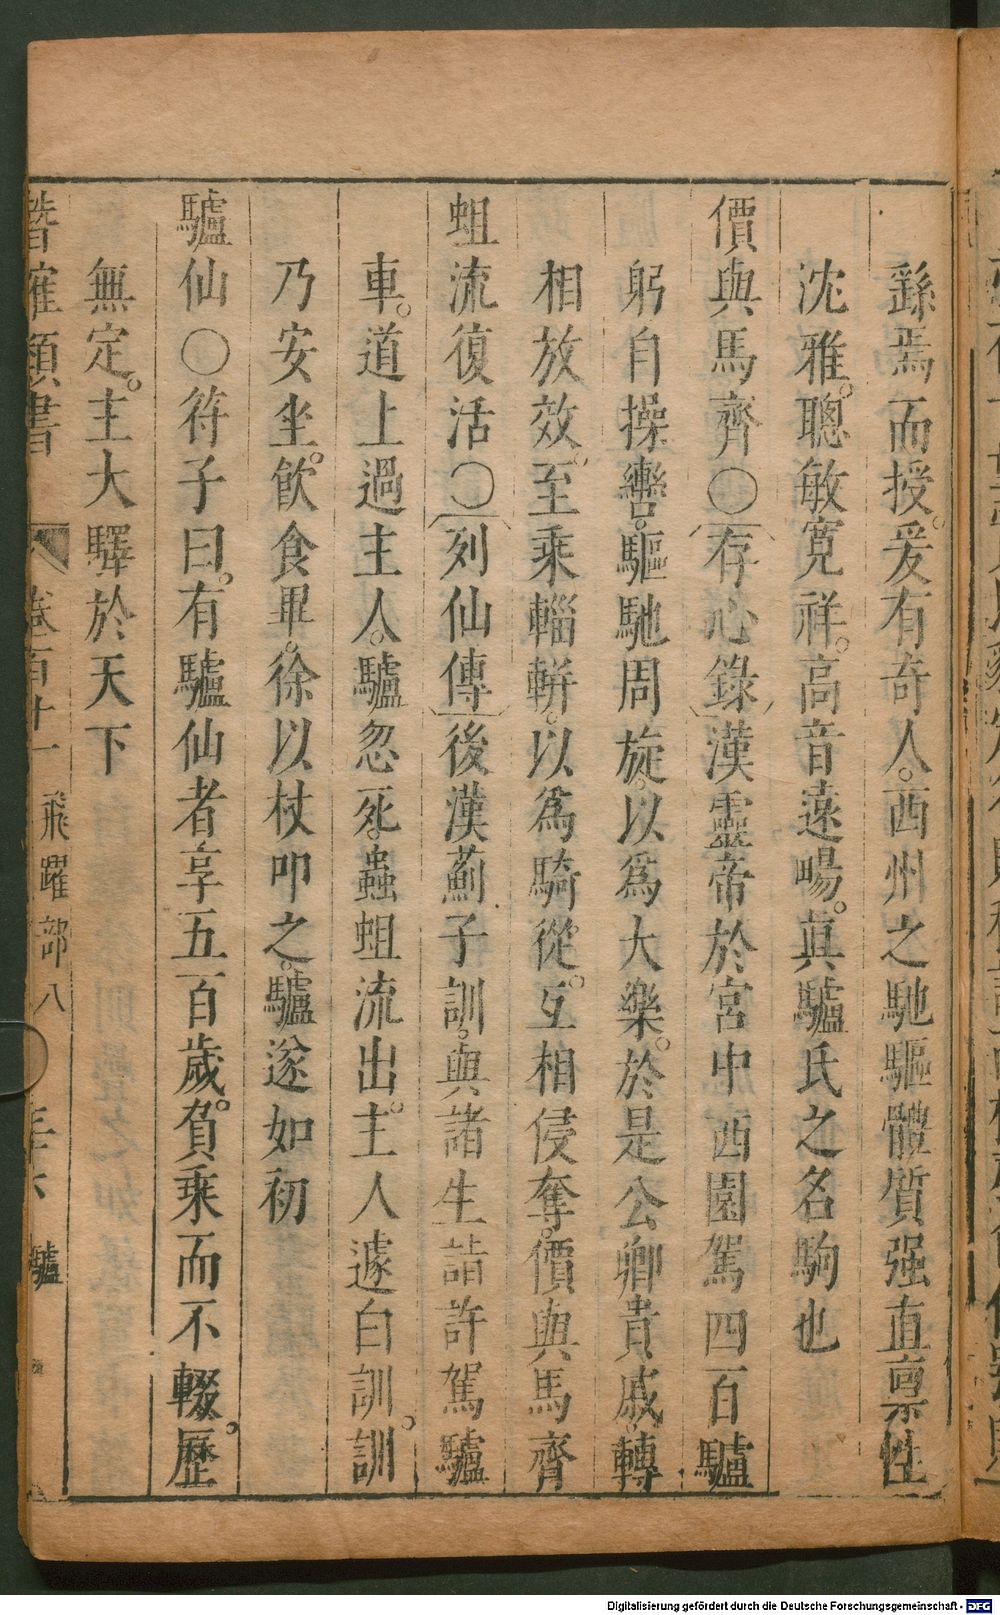 繇焉而授。爰有奇人。西州之馳驅體質强直禀性
沈雅。聰敏寛祥。高音遠暢。眞驢氏之名駒也
價與馬齊〇存心錄漢靈帝於宮中西園駕四百驢
躬自操轡。驅馳周旋。以爲大樂。於是公卿貴戚。轉
相放效。至乘輜軿。以爲騎從。互相侵奪。價與馬齊
蛆流復活〇列仙傳後漢薊子訓。與諸生詣許駕驢
車。道上過主人。驢忽死。蟲蛆流出。主人遽白訓。訓
乃安坐。飲食畢。徐以杖叩之。驢遂如初
驢仙〇符子曰。有驢仙者享五百歲。負乘而不輟。歷
無定。主大驛於天下
潛確類書 卷百十一 飛躍部八 三十六 驢
Digitalisierung gefördert durch die Deutsche Forschungsgemeinschaft - DFG